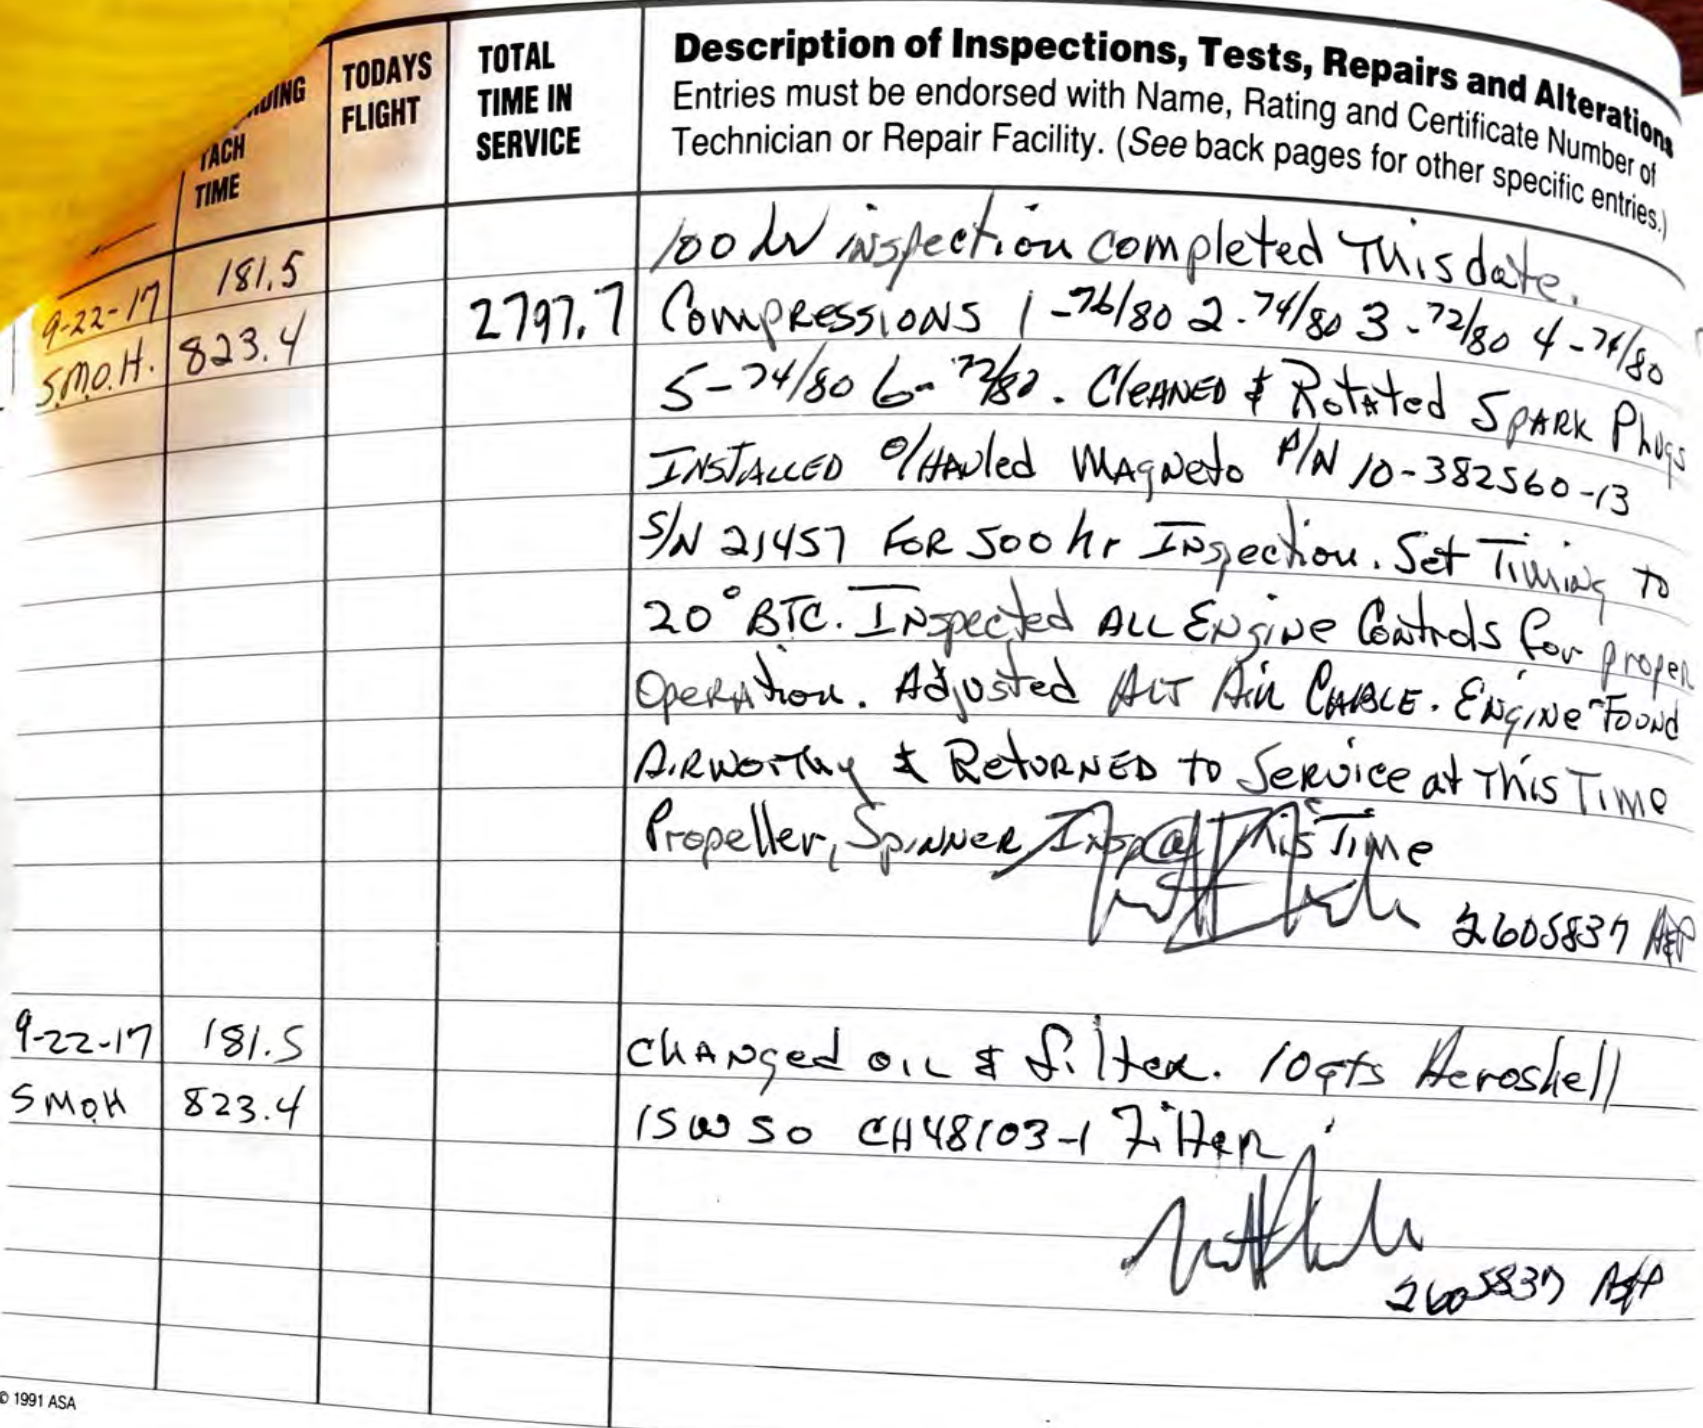 DING TACH TIME
TODAYS FLIGHT
TOTAL TIME IN SERVICE
Description of Inspections, Tests, Repairs and Alterations
Entries must be endorsed with Name, Rating and Certificate Number of
Technician or Repair Facility. (See back pages for other specific entries.)
9-22-17 181.5 100 hr inspection completed This date.
S.M.O.H. 823.4 2797.7 Compressions 1-76/80 2-74/80 3-72/80 4-74/80
5-74/80 6-72/80. Cleaned & Rotated Spark Plugs
Installed O/Hauled Magneto P/N 10-382560-13
S/N 21457 For 500 hr Inspection. Set Timing to
20° BTC. Inspected ALL Engine Controls for proper
Operation. Adjusted ALT Air Cable. Engine Found
Airworthy & Returned to Service at This Time
Propeller, Spinner Insp @ This Time
2605837 A&P
9-22-17 181.5 Changed oil & filter. 10qts Aeroshell
SMOH 823.4 15W50 CH48103-1 Filter
2605837 A&P
© 1991 ASA